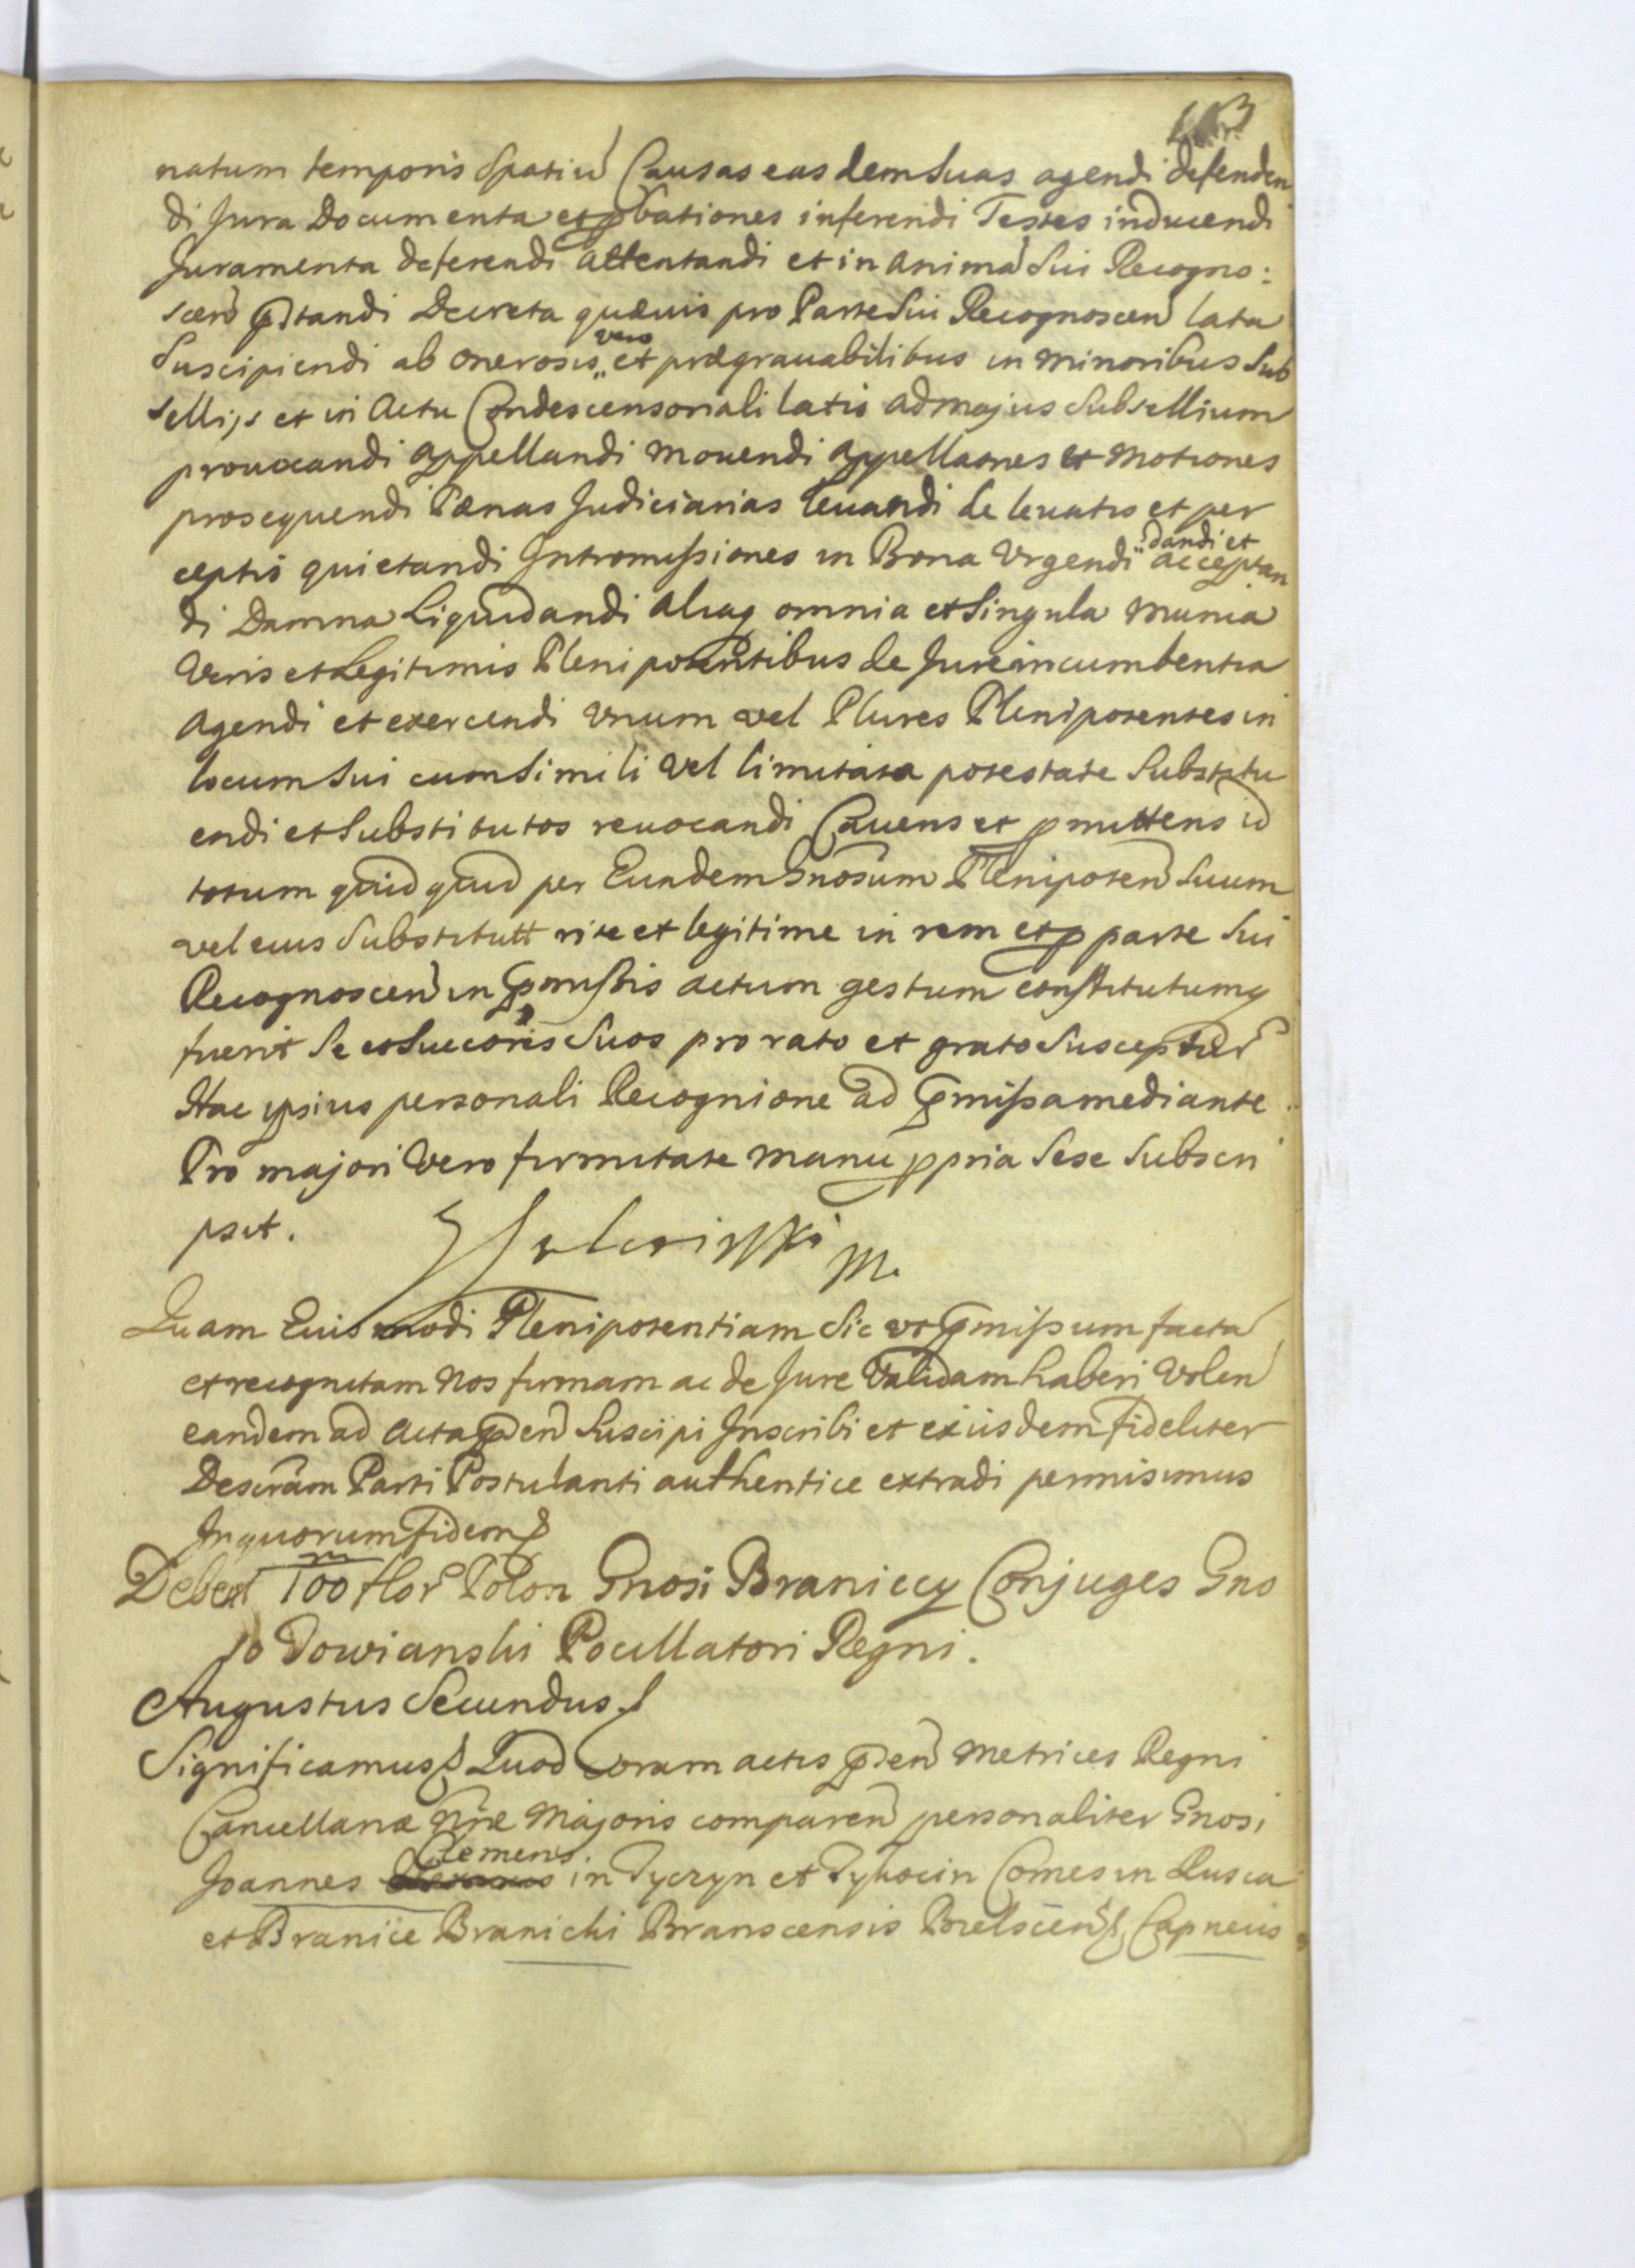 113
natum temporis spatiũ Causas easdem suas agendi defenden
di Jura Documenta et pbationes inferendi Testes inducendi
Juramenta deferendi attentandi et in animã sui Recogno:
scen̄ p̄standi Decreta quævis pro Parte sui Recognoscen̄ lata
Suscipiendi ab onerosis vero et prægravabilibus in minoribus Sub
sellijs et in Actu Condescensoriali latis ad majus subsellium
provocandi appellandi movendi appellaones et motiones
prosequendi Pænas Judiciarias levandi de levatis et per
ceptis quietandi Intromissiones in Bona Urgendi dandi et acceptan
di Damna Liquidandi aliaq omnia et singula munia
Veris et Legitimis Plenipotentibus de Jure incumbentia
agendi et exercendi Unum vel Plures Plenipotentes in
locum sui cum simili vel limitata potestate substitu
endi et substitutos revocandi Cavens et pmittens id
totum quid quid per Eundem Gnosum Plenipoten̄ suum
vel eius substitutt rite et legitime in rem et p parte sui
Recognoscen̄ in p̄missis actum gestum constitutumq
fuerit se et succores suos pro rato et grato susceptur̄
Hac ipsius personali Recognione ad p̄missa mediante.
Pro majori vero firmitate manu ppria sese subscri
psit.
m.
Quam Eiusmodi Plenipotentiam sic ut p̄missum factã
et recognitam Nos firmam ac de Jure validam haberi volen̄
eandem ad Acta p̄den̄ suscipi Inscribi et ejusdem fideliter
Descrām Parti Postulanti authentice extradi permisimus
In quorum fidem &
Debent 100 m flor Polon Gnosi Braniccy Conjuges Gno
so Dowianski Pocillatori Regni.
Augustus Secundus &
Significamus & Quod coram actis p̄den̄ Metrices Regni
Cancellariæ n̄ræ Majoris comparen̄ personaliter Gnosi
Joannes Clemens in Tyczyn et Tykocin Comes in Rusca
et Branice Branichi Branscensis Bielscen̄ & Capneus